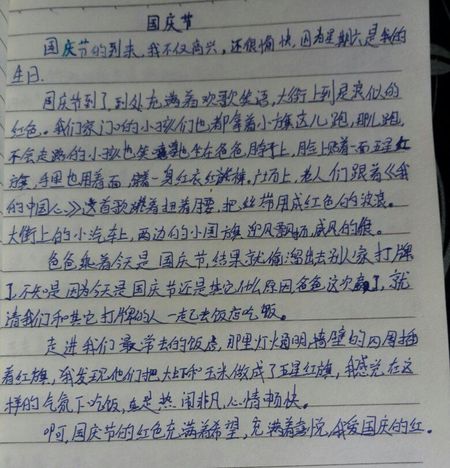 国庆节
国庆节的到来，我不仅高兴，还很愉快，因为星期六是我的
生日.
国庆节到了，到处充满着欢歌笑语，大街上到是浪似的
红色。我们家门口的小孩们也都拿着小旗这儿跑，那儿跑，
不会走路的小孩也笑嘻嘻地坐在爸爸脖子上，脸上贴着一面五星红
旗，手里也用着面，穿着一身红衣红裤裤。广场上，老人们跟着《我
的中国心》这首歌摆着扭着腰，把丝带甩成红色的波浪。
大街上的小汽车上，两边的小国旗迎风飘扬，威风的很。
爸爸乘着今天是国庆节，结果就偷溜出去别人家打牌
了，不知是因为今天是国庆节还是其它什么原因爸爸这次赢了，就
请我们和其它打牌的人一起去饭店吃饭。
走进我们最常去的饭店，那里灯火通明，墙壁的四周插
着红旗，我发现他们把大虾和玉米做成了五星红旗，我感觉在这
样的气氛下吃饭，真是热闹非凡，心情畅快。
啊，国庆节的红色充满着希望，充满着喜悦，我爱国庆的红。